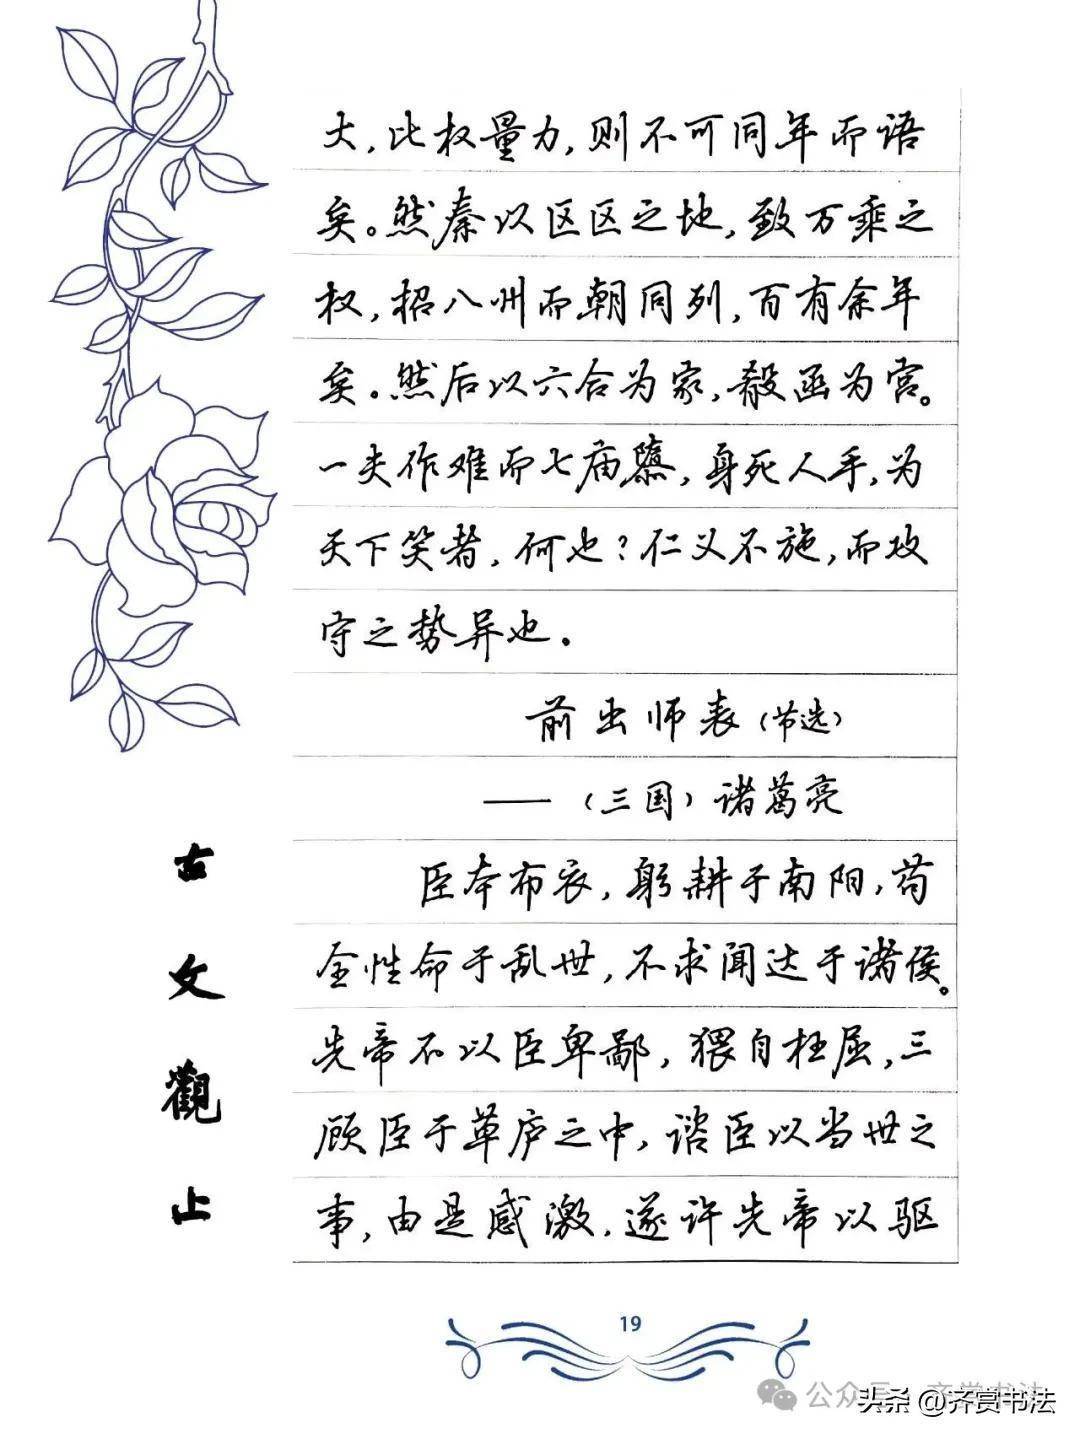 大,比权量力,则不可同年而语
矣。然秦以区区之地,致万乘之
权,招八州而朝同列,百有余年
矣。然后以六合为家,殽函为宫。
一夫作难而七庙隳,身死人手,为
天下笑者,何也?仁义不施,而攻
守之势异也。
前出师表(节选)
——(三国)诸葛亮
臣本布衣,躬耕于南阳,苟
全性命于乱世,不求闻达于诸侯。
先帝不以臣卑鄙,猥自枉屈,三
顾臣于草庐之中,谘臣以当世之
事,由是感激,遂许先帝以驱
古文觀止
19
公众号·齐赏书法
头条 @齐赏书法